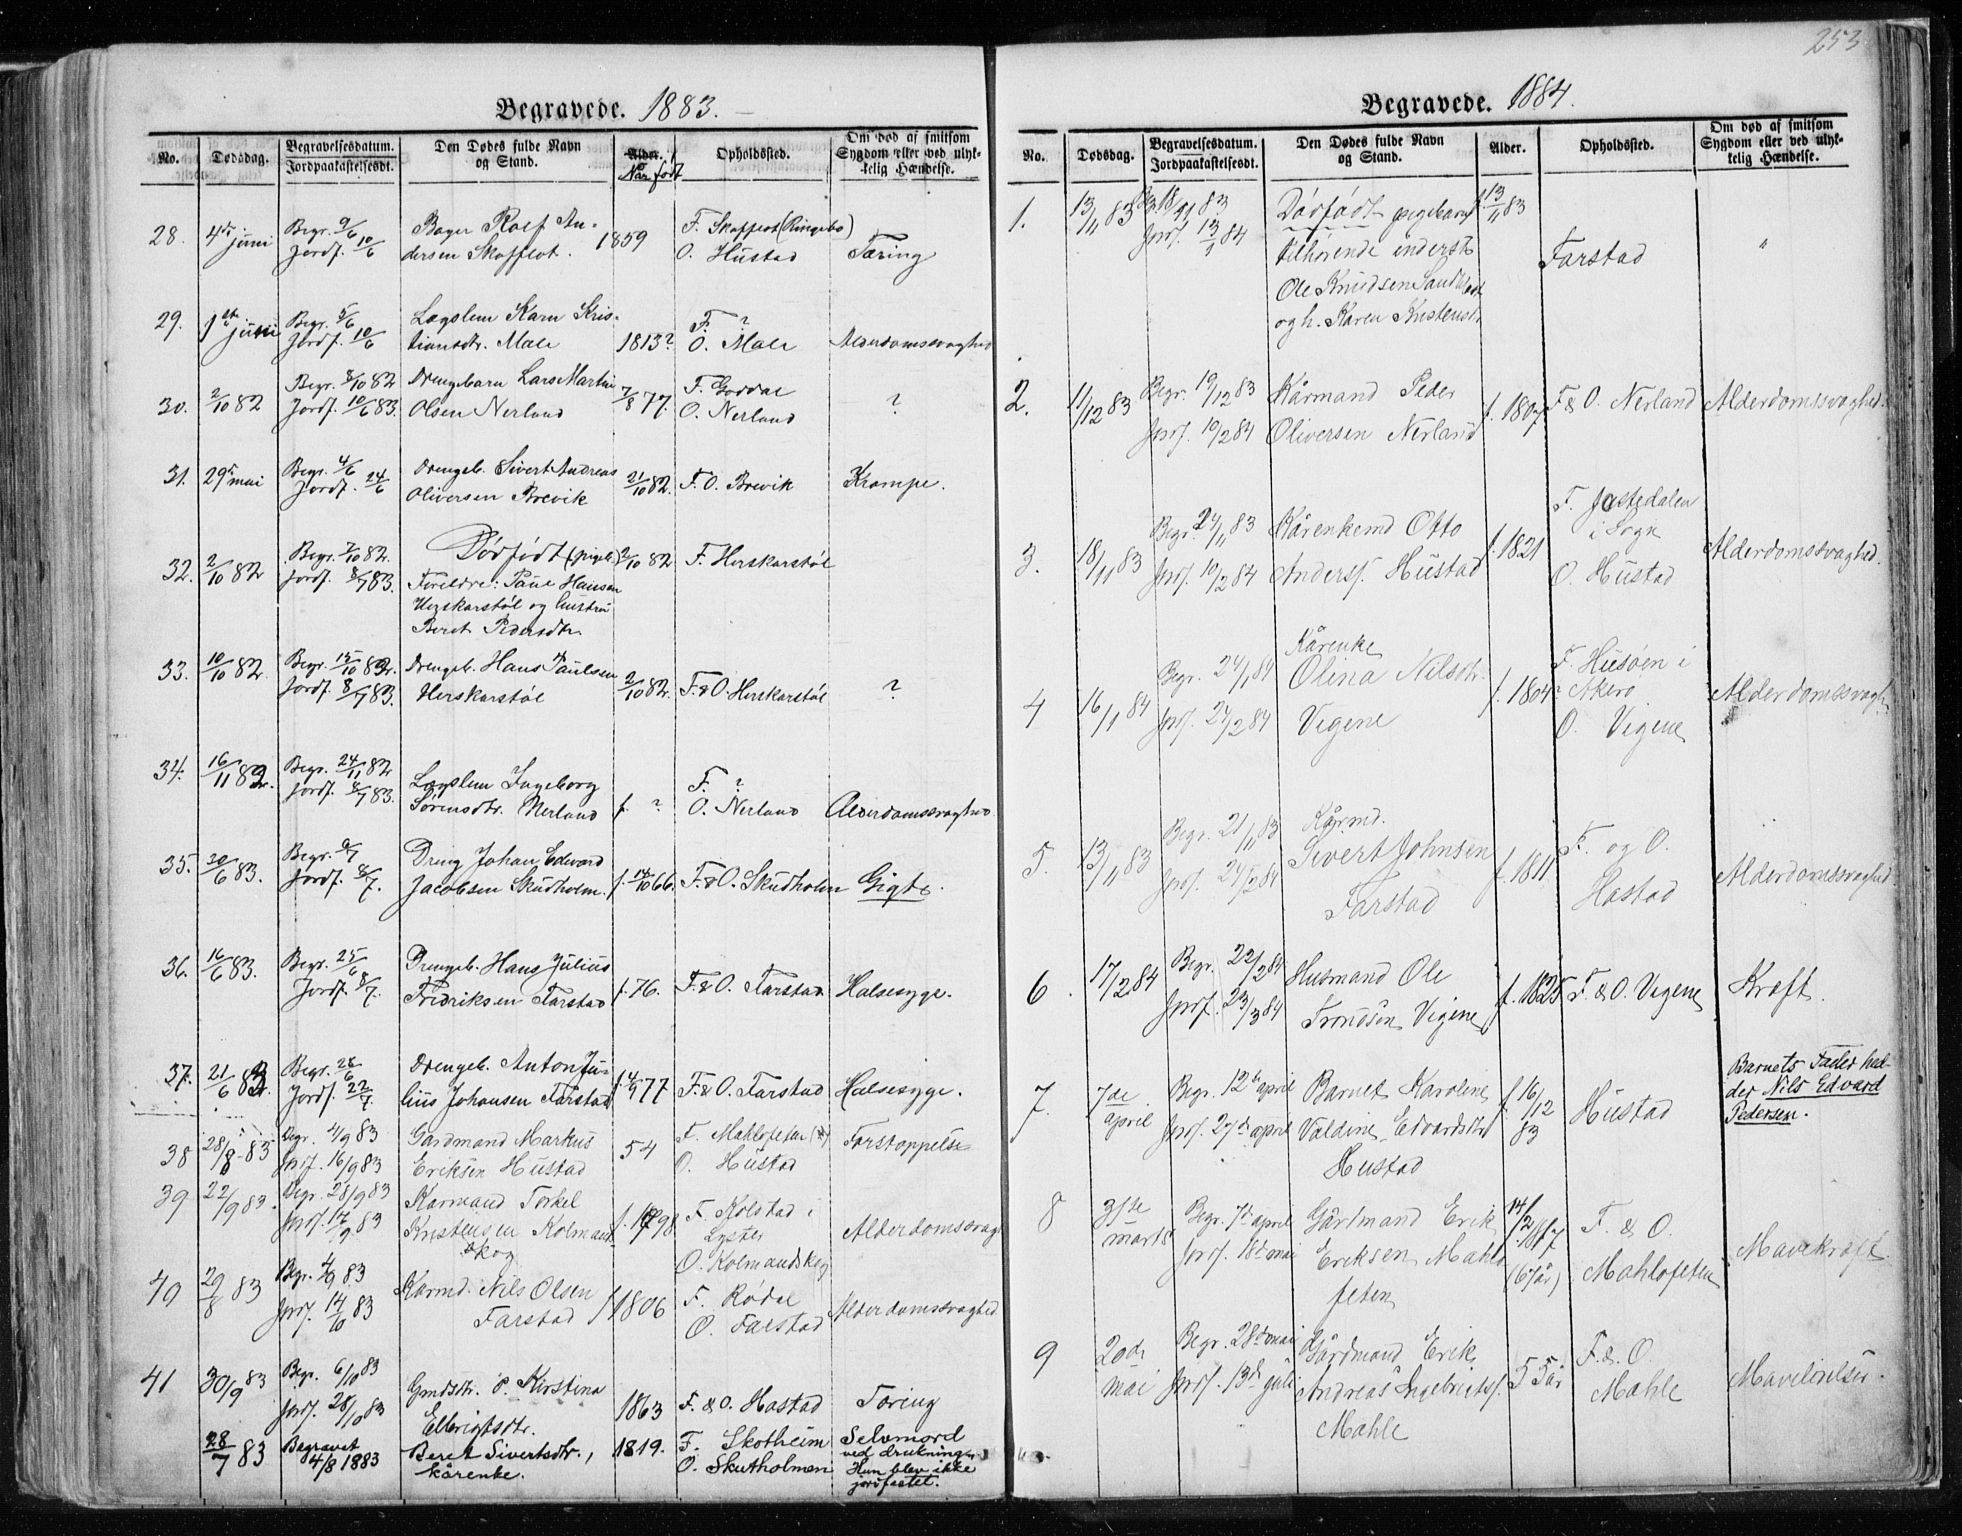 253
Begravede. 1883.
No. Dødsdag. Begravelsesdatum. Jordpaakastelsesdt. Den Dødes fulde Navn og Stand. Alder. Når født Opholdssted. Om død af smitsom Sygdom eller ved ulykkelig Hændelse.
28. 4de juni Begr. 9/6 Bager Rolf An- 1859 F. Skofflot (Ringebo)
Jordf. 10/6 dersen Skofflot. O. Hustad Tæring
29. 1ste juni Begr. 5/6 Lægslem Karn Kris- F. ?
Jordf. 10/6 tiansdtr. Male 1813? O. Male Alderdomssvaghed
30. 2/10 82 Begr. 8/10 82 Drengebarn Lars Martin 7/8 77. F. Gordal
Jordf. 10/6 83. Olsen Nerland O. Nerland ?
31. 29de mai Begr. 4/6 Drengeb. Sivert Andreas 21/10 82. F. O. Brevik Krampe.
Jordf. 24/6 Oliversen Brevik
32. 2/10 82 Begr. 7/10 82. Dødfødt (pigeb.) 2/10 82 F. Herskarstøl
Jordf. 8/7 83. Foreldre: Paul Hansen
Herskarstøl og hustru
Beret Pedersdtr.
33. 10/10 82. Begr. 15/10 82. Drengeb. Hans Paulsen 2/10 82. F. & O. Herskarstøl ?
Jordf. 8/7 83. Herskarstøl
34. 16/11 82. Begr. 24/11 82 Lægslem Ingeborg F. ?
Jordf. 8/7 83. Sørensdtr. Nerland f. ? O. Nerland Alderdomssvaghed
35. 30/6 83. Begr. 9/7 Dreng Johan Edvard
Jordf. 8/7. Jacobsen Skudholm. f. 14/10 66. F. & O. Skudholm Gigt.
36. 16/6 83. Begr. 25/6 Drengeb. Hans Julius
Jordf. 8/7. Fridriksen Farstad f. 76. F. & O. Farstad Halsesyge.
37. 21/6 83 Begr. 28/6 Drengeb. Anton Ju-
Jordf. 22/7 lius Johansen Farstad f. 4/9 77 F. & O. Farstad Halsesyge.
38 28/8 83 Begr. 4/9 83 Gårdmand Markus 54 F. Mahlofeten
Jordf. 16/9 83 Eriksen Hustad O. Hustad Forstoppelse
39 22/9 83. Begr. 28/9 83 Kårmand Torkel f. 1798 F. Kolstad i
Jordf. 17/9 83 Kristensen Kolmands- Lyster Alderdomssvagh.
skog O. Kolmandskog
40 29/8 83 Begr. 4/9 83 Kårmd. Nils Olsen f. 1806 F. Rødal
Jordf. 14/10 83 Farstad O. Farstad Alderdomssvaghed
41 30/9 83 Begr. 6/10 83 Gmdsdtr. P. Kirstina
Jordf. 28/10 83 Elbrigtsdtr. 1863 F. & O. Hostad Tæring
28/7 83 Begravet Beret Sivertsdtr., 1819. F. Skotheim Selvmord
4/8 1883 kårenke. O. Skutholmen ved drukning.
Hun blev ikke
jordfæstet.
Begravede. 1884.
No. Dødsdag. Begravelsesdatum. Jordpaakastelsesdt. Den Dødes fulde Navn og Stand. Alder. Opholdssted. Om død af smitsom Sygdom eller ved ulykkelig Hændelse.
1. 13/11 83 Begr. 18/11 83 Dødfødt pigebarn f. 13/11 83
Jordf. 13/1 84 tilhørende inderst Farstad "
Ole Knudsen
og h. Karen Kristensdtr.
2. 11/12 83. Begr. 19/12 83 Kårmand Peder f. 1807 F & O. Nerland Alderdomssvaghed.
Jordf. 10/2 84 Oliversen Nerland
3. 18/10 83 Begr. 24/11 83 Kårenkemd Otto f. 1821 F. Jostedalen
i Sogn
Jordf. 10/2 84 Andersf. Hustad O. Hustad Alderdomssvaghed.
4 16/1 84 Begr. 24/1 84 Kårenke F. Husøen i
Olina Nilsdtr. f. 1804 Akerø
Jordf. 24/2 84 Vigene O. Vigene Alderdomssvagh.
5. 13/11 83 Begr. 21/11 83 Kårmd.
Sivert Johnsen f. 1811 F. og O.
Jordf. 24/2 84 Farstad Hostad Alderdomssvaghed.
6 17/2 84 Begr. 22/2 84 Husmand Ole f. 1825 F. & O. Vigene Kræft.
Jordf. 23/3 84 Trondsen Vigene
7. 7de april Begr. 12te april Barnet Karoline f. 16/12 83 Hustad Barnets Fader hed-
der Nils Edvard
Jordf. 27de april Valdine Edvardsdtr Pedersen.
Hustad
8 31te marts Begr. 7de april Gårdmand Erik 14/2 1817 F. & O.
Jordf. 18de mai Eriksen Mahlo- (67 år) Mahlofeten Mavekræft
feten
9 20de mai Begr. 28de mai Gårdmand Erik 55 år F. & O.
Jordf. 13de juli Andreas Ingebrigtsf. Mahle Mavelidelser.
Mahle